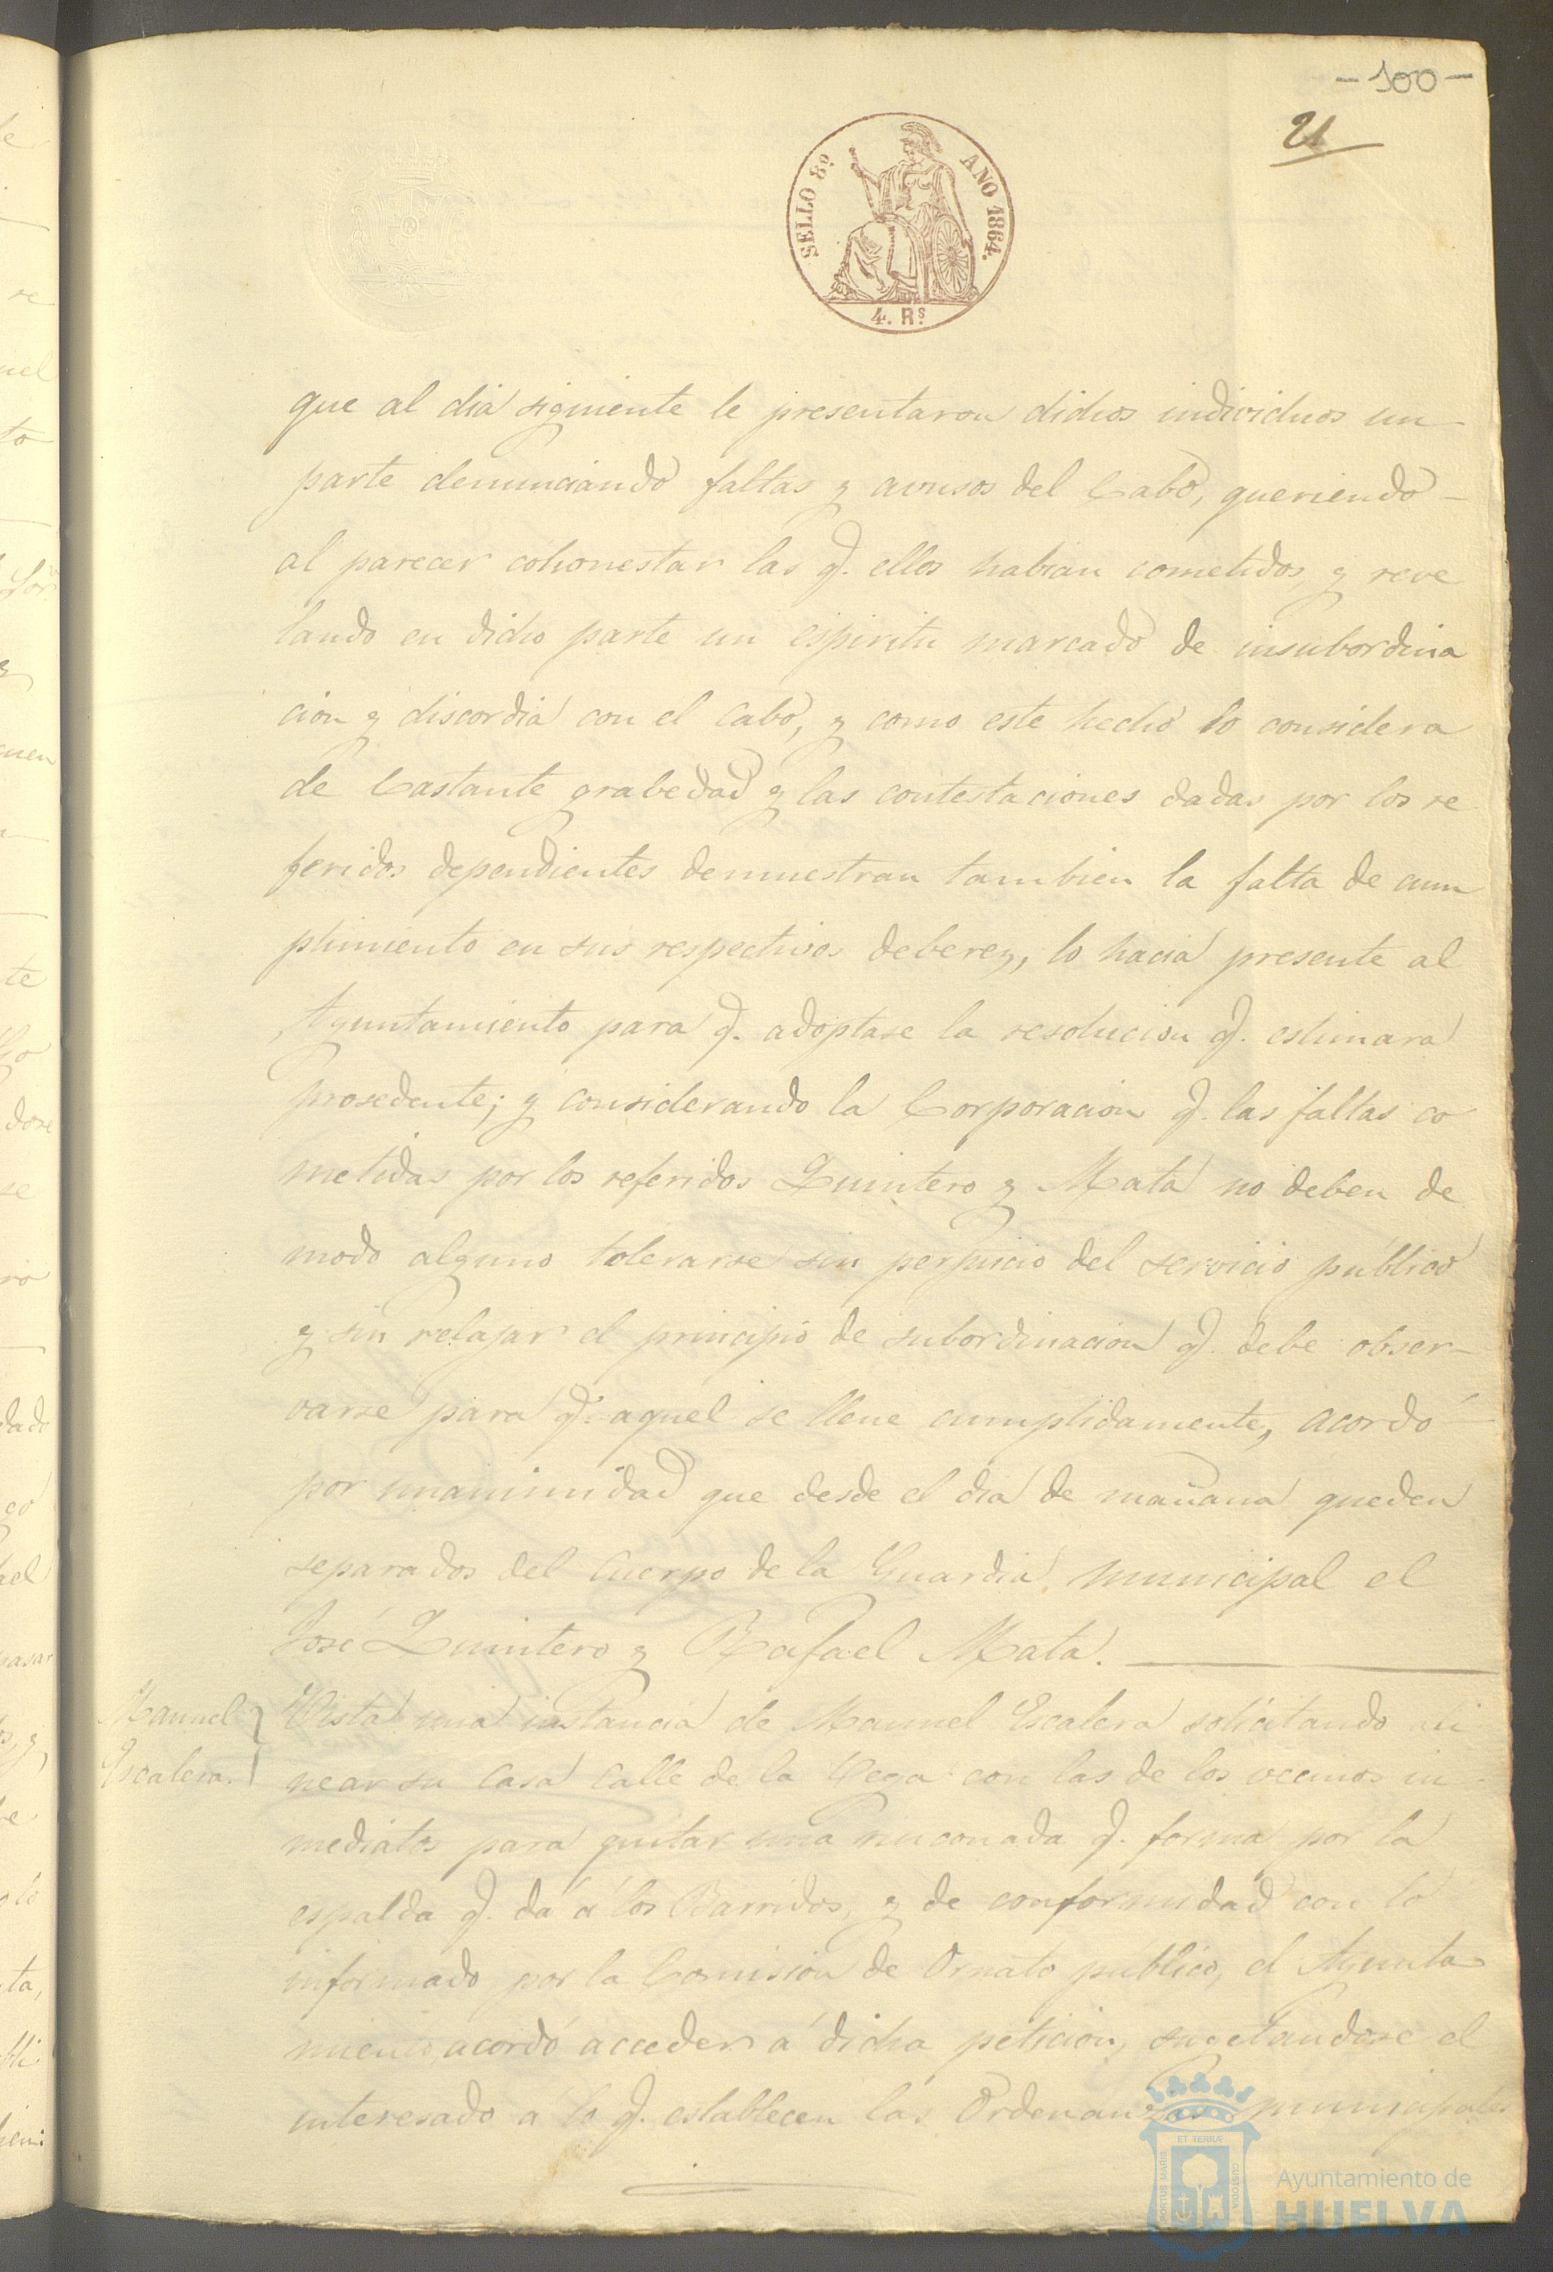 -100-
21
SELLO 8º AÑO 1864.
4. Rs
que al dia siguiente le presentaron dichos individuos un
parte denunciando faltas y avusos del Cabo, queriendo
al parecer cohonestar las q. ellos habian cometidos, y reve
lando en dicho parte un espiritu marcado de insubordina
cion y discordia con el Cabo, y como este hecho lo considera
de bastante grabedad y las contestaciones dadas por los re
feridos dependientes demuestran tambien la falta de cum
plimiento en sus respectivos deberez, lo hacia presente al
Ayuntamiento para q. adoptase la resolucion q. estimara
prosedente; y considerando la Corporacion q. las faltas co
metidas por los referidos Quintero y Mata no deben de
modo alguno tolerarse sin perjuicio del servicio público
y sin relajar el principio de subordinacion q. debe obser-
varse para q. aquel se llene cumplidamente, acordó
por unanimidad que desde el dia de mañana queden
separados del Cuerpo de la Guardia municipal el
José Quintero y Rafael Mata.
Manuel
Escalera.
Vista una instancia de Manuel Escalera solicitando ali
near su casa Calle de la Vega con las de los vecinos in
mediatos para quitar una rinconada q. forma por la
espalda q. dá á los Barridos, y de conformidad con lo
informado por la Comision de Ornato público, el Ayunta
miento acordó acceder á dicha peticion, sugetandose el
interesado á lo q. establecen las Ordenanzas municipales
PORTUS MARIS ET TERRÆ CUSTODIA
Ayuntamiento de
HUELVA